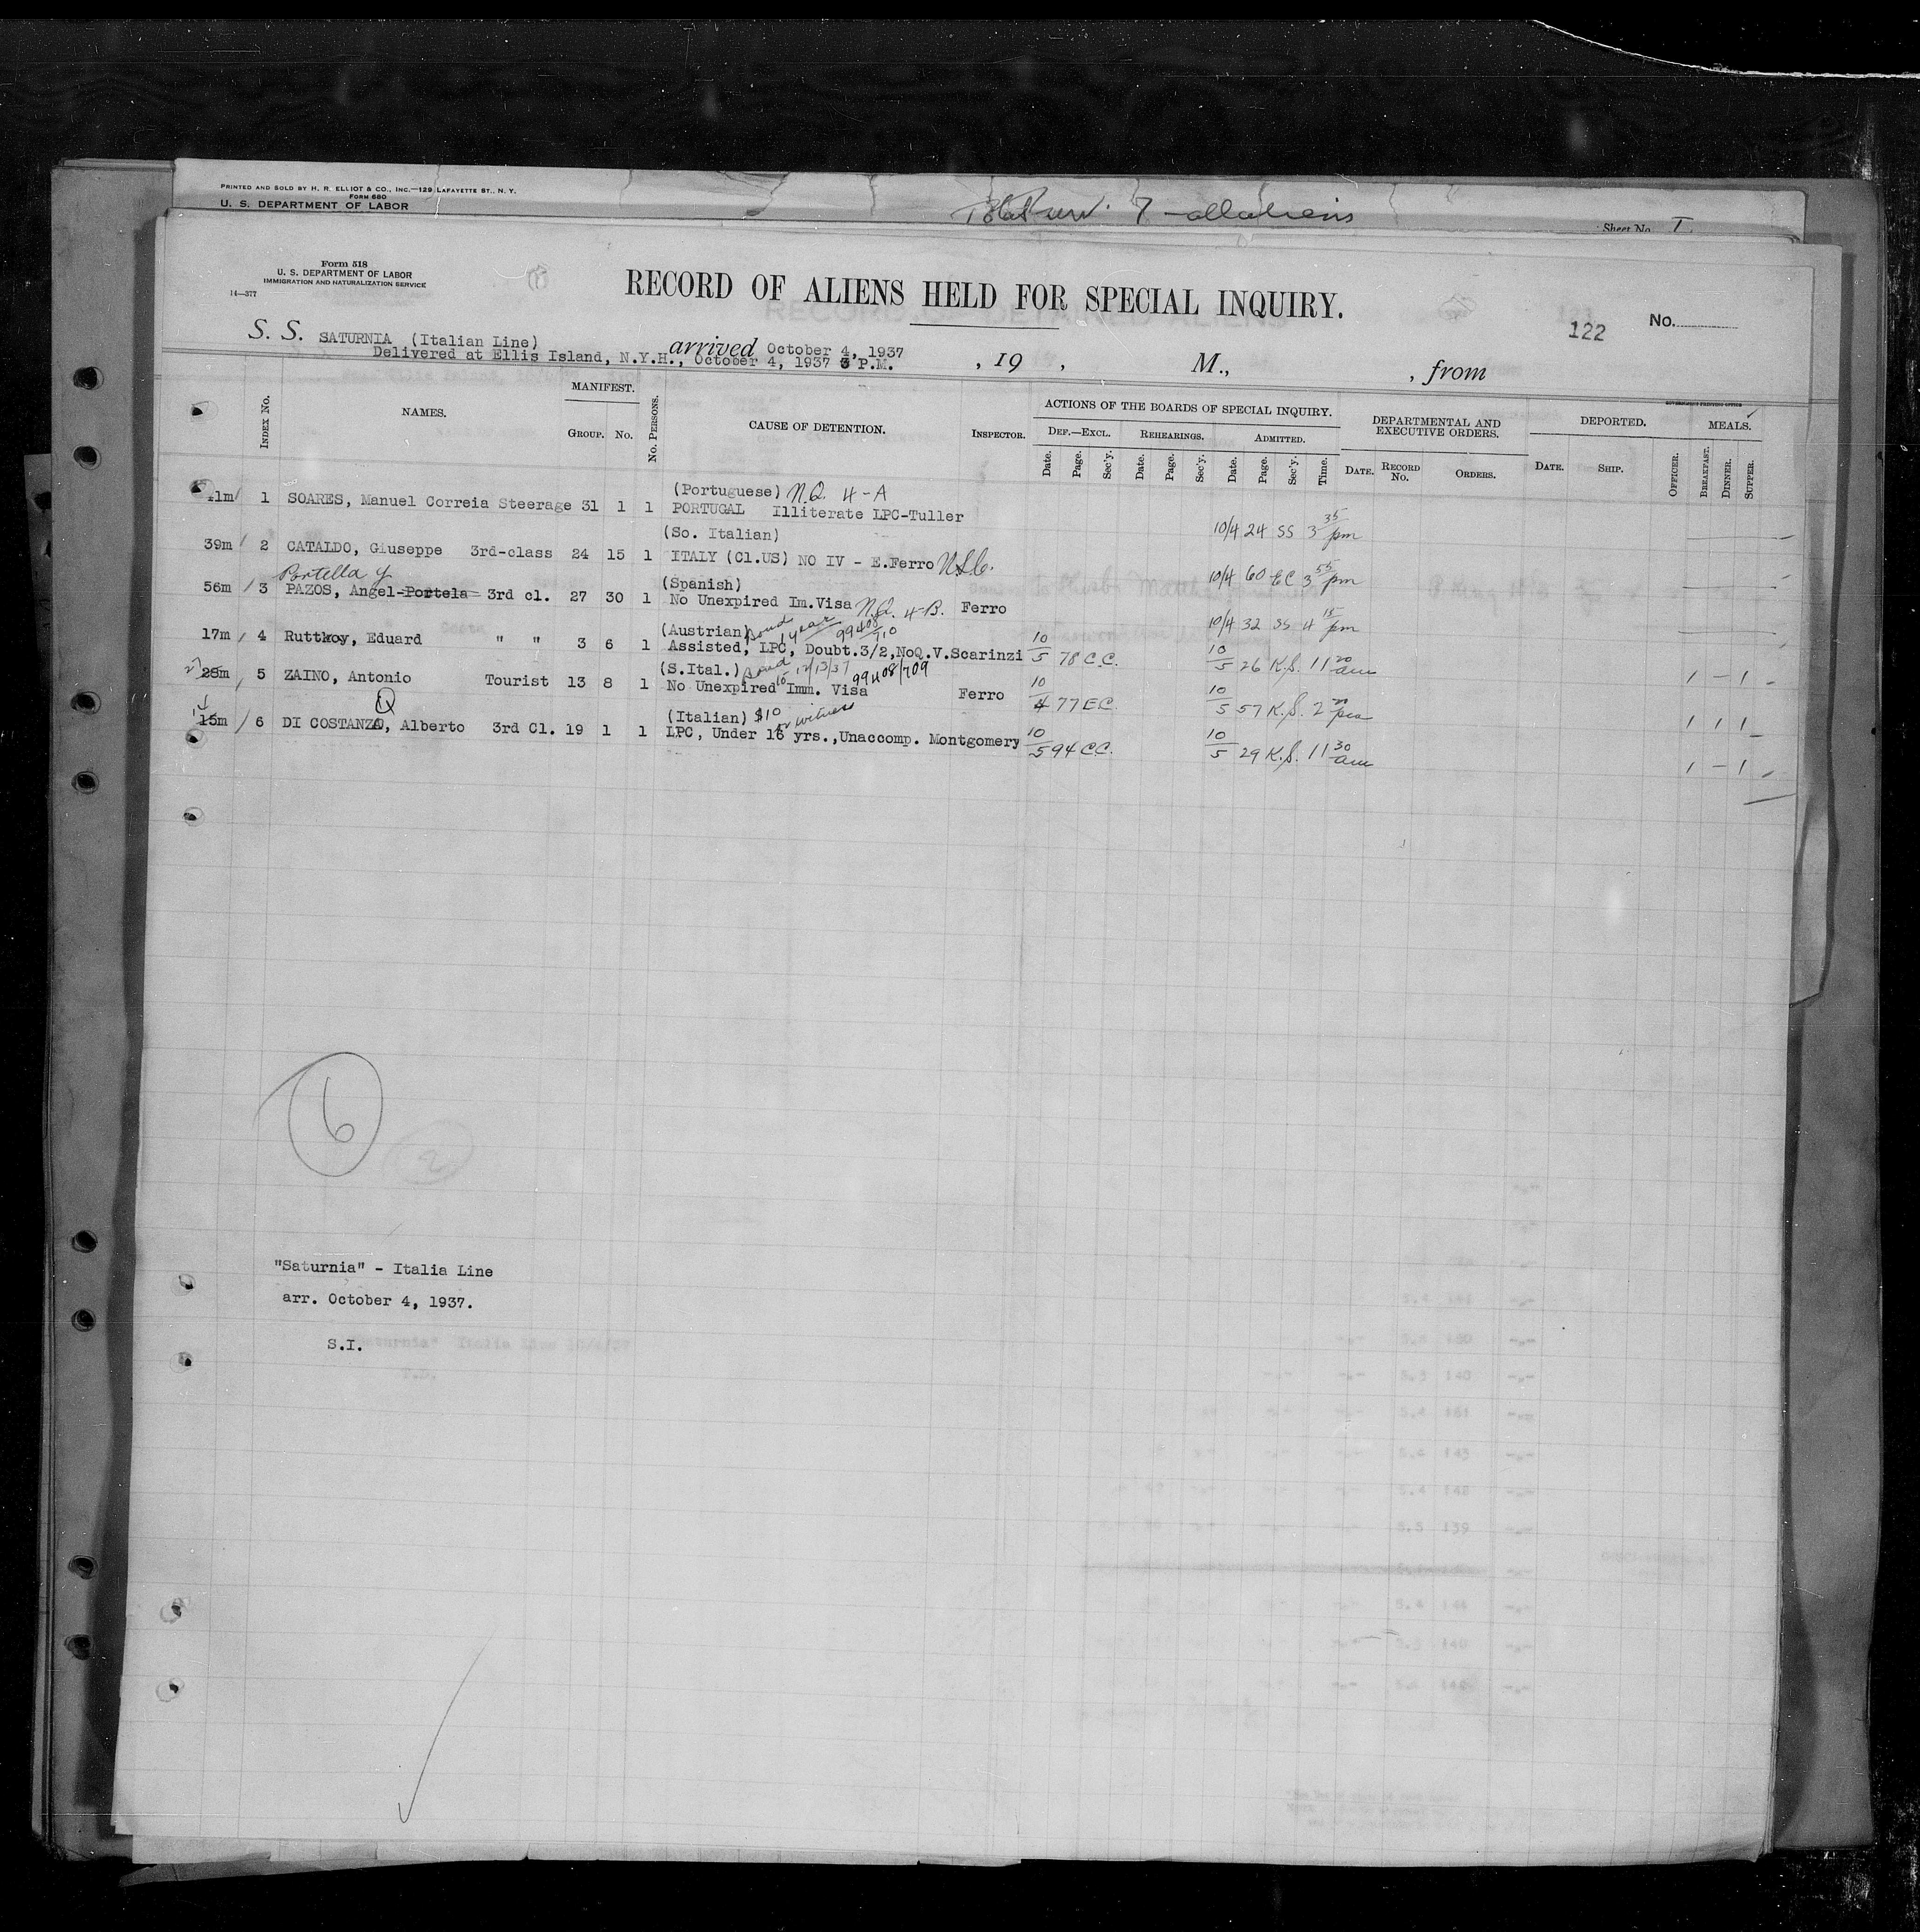 PRINTED AND SOLD BY H. R. ELLIOT & CO., INC.—129 LAFAYETTE ST., N. Y.
FORM 680
U. S. DEPARTMENT OF LABOR
Sheet No. I
Form 518
U. S. DEPARTMENT OF LABOR
IMMIGRATION AND NATURALIZATION SERVICE
14—377
RECORD OF ALIENS HELD FOR SPECIAL INQUIRY.
122 No.
S. S. SATURNIA (Italian Line) arrived October 4, 1937
Delivered at Ellis Island, N.Y.H., October 4, 1937 3 P.M. , 19 , M., , from
INDEX No. NAMES. MANIFEST. GROUP. No. No. PERSONS. CAUSE OF DETENTION. INSPECTOR. ACTIONS OF THE BOARDS OF SPECIAL INQUIRY. DEPARTMENTAL AND EXECUTIVE ORDERS. DEPORTED. MEALS.
DEF.—EXCL. REHEARINGS. ADMITTED.
Date. Page. Sec'y. Date. Page. Sec'y. Date. Page. Sec'y. Time. DATE. RECORD No. ORDERS. DATE. SHIP. OFFICER. BREAKFAST. DINNER. SUPPER.
(Portuguese) N.Q. 4-A
41m 1 SOARES, Manuel Correia Steerage 31 1 1 PORTUGAL Illiterate LPC-Tuller 10/4 24 SS 3 35 pm
(So. Italian)
39m 2 CATALDO, Giuseppe 3rd-class 24 15 1 ITALY (Cl.US) NO IV - E.Ferro 10/4 60 EC 3 55 pm
Portella y (Spanish)
56m 3 PAZOS, Angel Portela 3rd cl. 27 30 1 No Unexpired Im.Visa N.Q. 4-B. Ferro 10/4 32 SS 4 15 pm
(Austrian) Bond 1 year 99408/710
17m 4 Ruttkoy, Eduard " " 3 6 1 Assisted, LPC, Doubt.3/2,NoQ.V.Scarinzi 10/5 78 C.C. 10/5 26 K.S. 11 20 am 1 - 1
(S.Ital.) Bond to 12/13/37 99408/709
27 28m 5 ZAINO, Antonio Tourist 13 8 1 No Unexpired Imm. Visa Ferro 10/4 77 EC. 10/5 57 K.S. 2 20 pm 1 1 1
(Italian) $10 or witness
15m 6 DI COSTANZO, Alberto 3rd Cl. 19 1 1 LPC, Under 16 yrs.,Unaccomp. Montgomery 10/5 94 C.C. 10/5 29 K.S. 11 30 am 1 - 1
6
2
"Saturnia" - Italia Line
arr. October 4, 1937.
S.I.